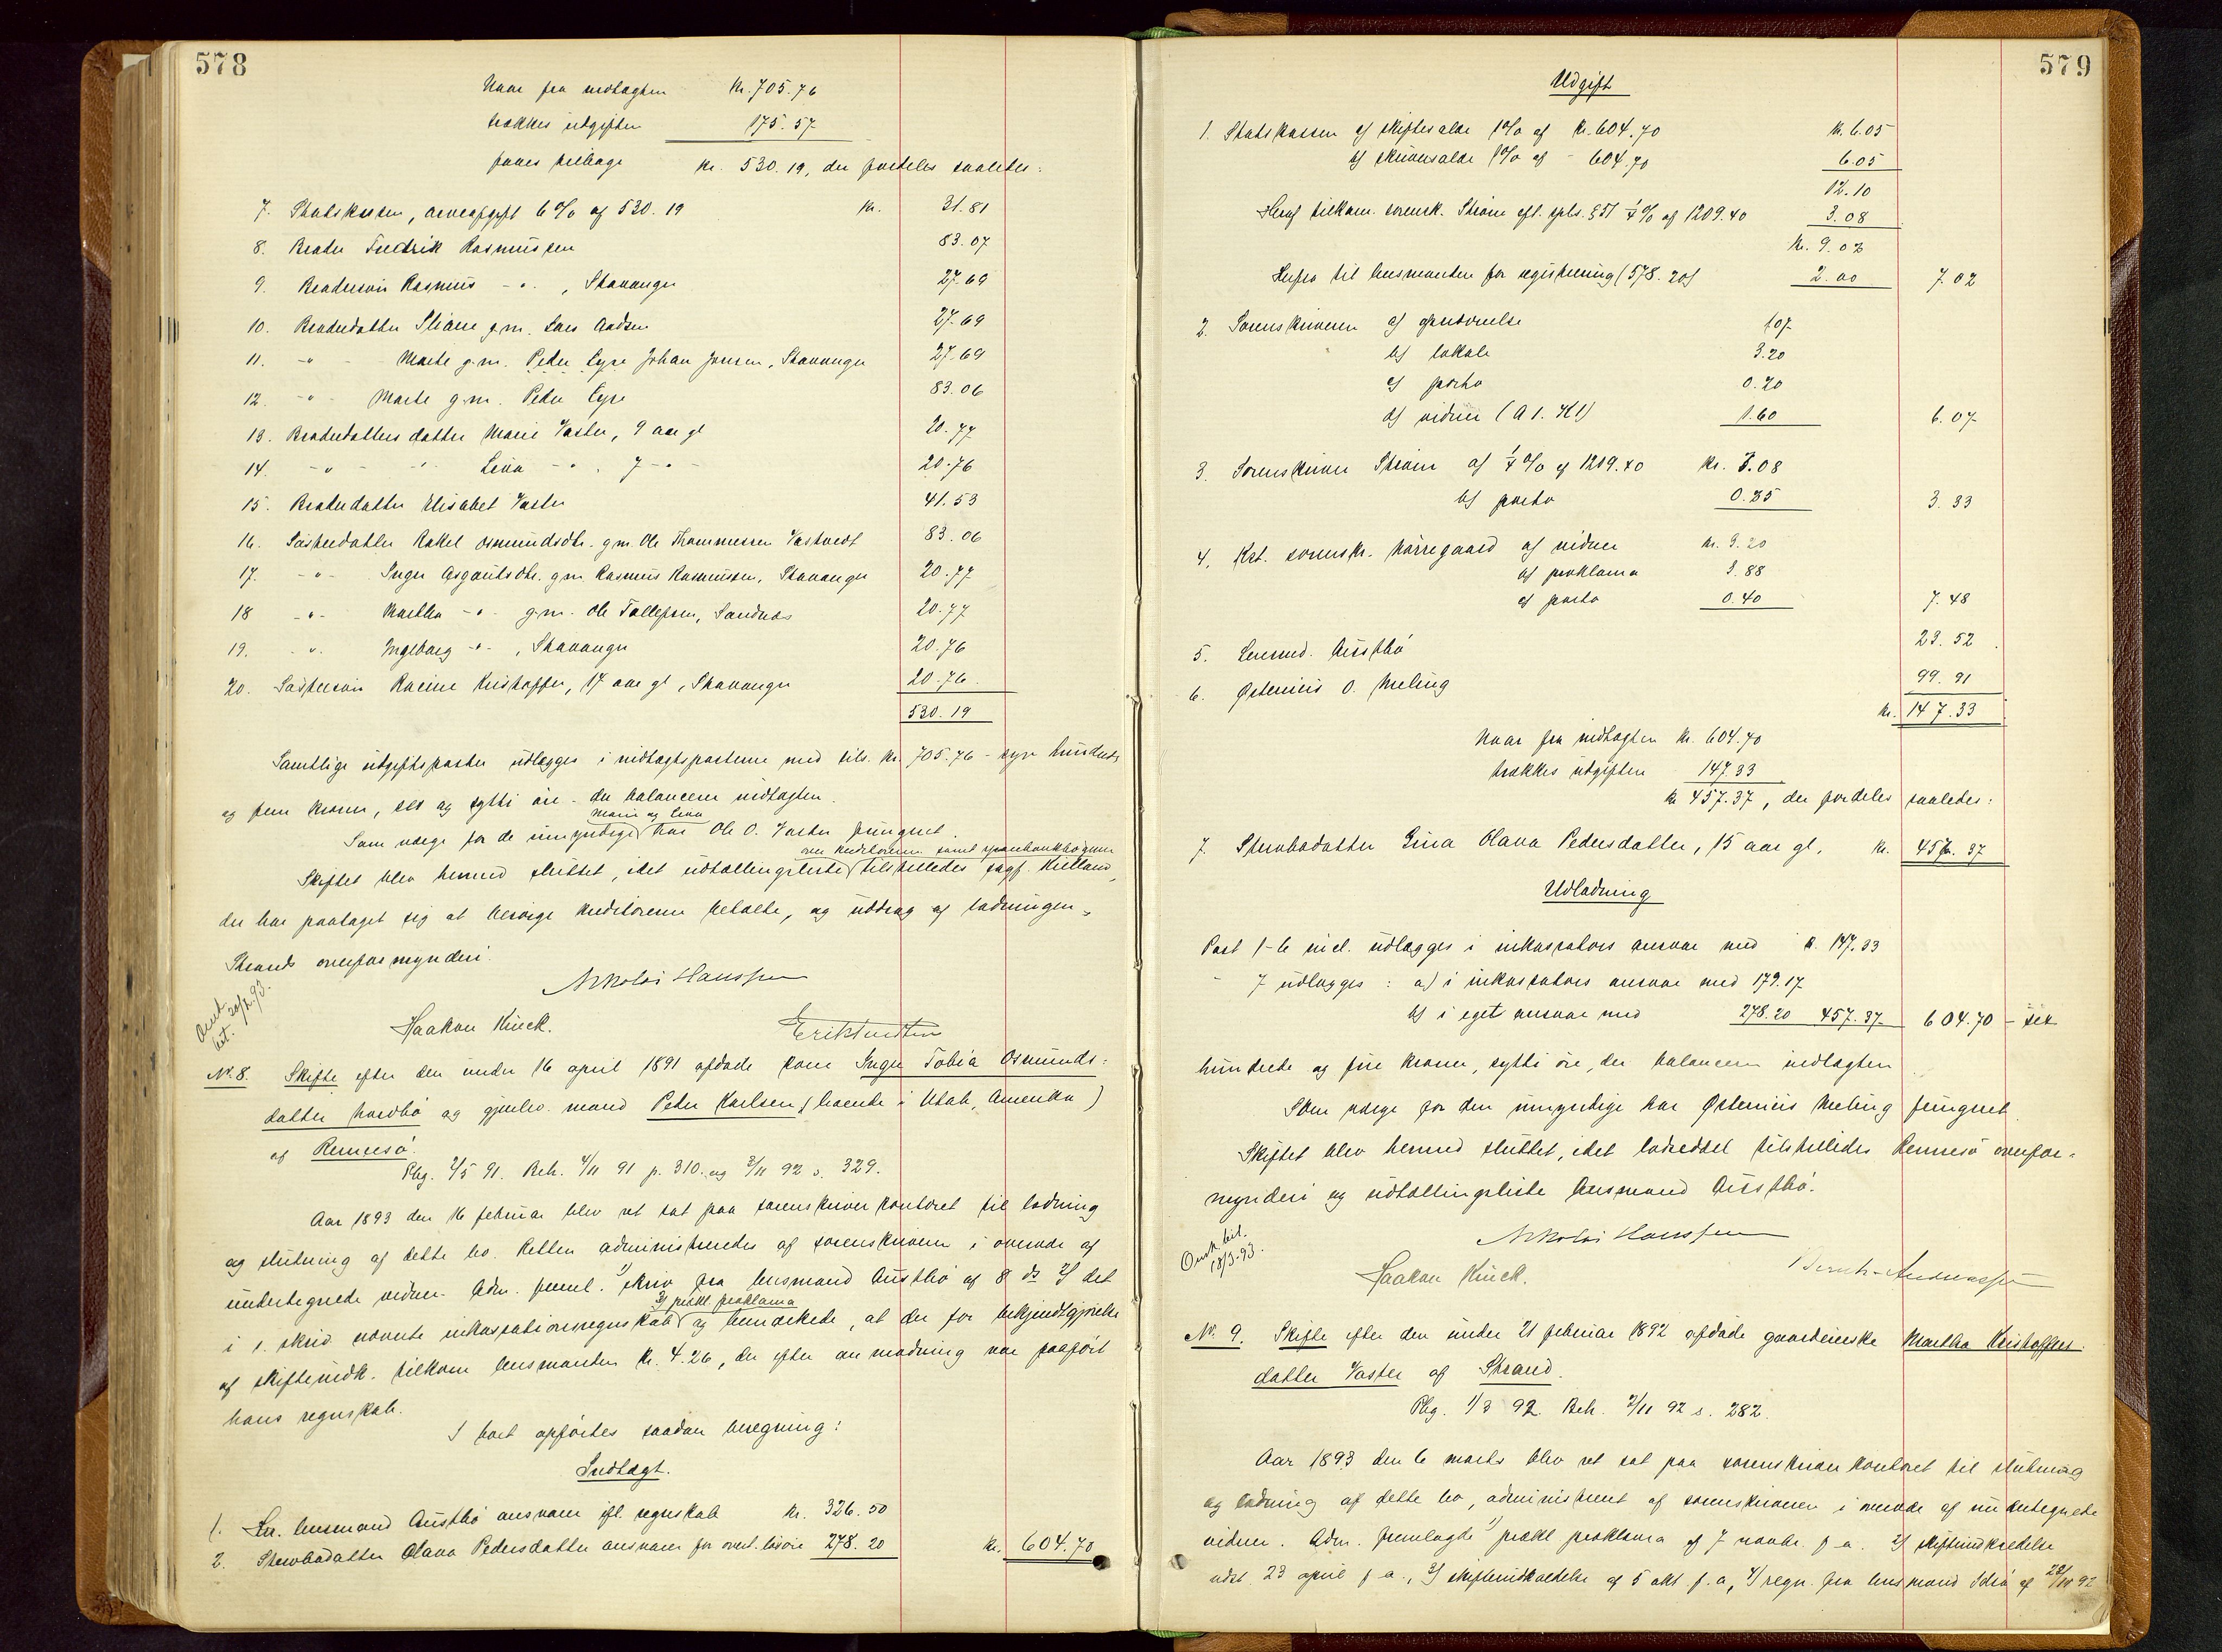 578
Naar fra indtægten Kr. 705.76
trækkes udgiften 175.57
faaes tilbage Kr. 530.19, der fordeles saaledes:
7. Statskassen, arveafgift 6% af 530.19 Kr. 31.81
8. Broder Fredrik Rasmussen 83.07
9. Brodersøn Rasmus -"-, Stavanger 27.69
10. Broderdatter Eliane g.m. Lars Aadsen 27.69
11. -"- Marte g.m. Peder Eyre Johan Jensen, Stavanger 27.69
12. -"- Marte g.m. Peder Eyre 83.06
13. Broderdatters datter Marie Vaster, 9 aar gl 20.77
14. -"- -"- Lina -"- 7 -"- 20.76
15. Broderdatter Elisabet Vaster 41.53
16. Søsterdatter Rakel Osmundsdtr. g.m. Ole Thommessen Vastvedt 83.06
17. -"- Inger Asgautsdtr. g.m. Rasmus Rasmussen, Stavanger 20.77
18 -"- Martha -"- g.m. Ole Tollefsen, Sandnæs 20.77
19. -"- Ingeborg -"-, Stavanger 20.76
20. Søstersøn Rasmus Kristoffer, 17 aar gl, Stavanger 20.76
530.19
Samtlige udgiftsposter udlægges i indtægtsposterne med tils. Kr. 705.76 - syv hundrede
og fem kroner, sex og sytti øre - der balancerer indtægten.
Marie og Lina
Som værge for de umyndige har Ole O. Vaster fungeret.
over kreditorerne samt sparebankbøgerne
Skiftet blev hermed sluttet, idet udtællingsliste tilstilledes sagf. Kielland,
der har paataget sig at besørge kreditorerne betalte, og uddrag af lodningen,
Strands overformynderi.
Nikolai Hanssen
Haakon Kinck. Erik Knudsen
Anmk
bit. 20/2 93.
No. 8. Skifte efter den under 16 april 1891 afdøde kone Inger Tobia Osmunds-
datter Hordbø og gjenlev. mand Peder Karlsen (boende i Utah, Amerika)
af Rennesø.
Pbg. 2/5 91. Beh. 4/11 91 p. 310. og 3/11 92 s. 329.
Aar 1893 den 16 februar blev ret sat paa sorenskriverkontoret til lodning
og slutning af dette bo. Retten administreredes af sorenskriveren i overvær af
undertegnede vidner. Adm. freml. 1) skriv fra lensmand Austbø af 8 ds 2) det
3) prokl. proklama
i s. skriv nævnte inkassationsregnskab og bemærkede, at der for bekjendtgjørelse
af skifteindk. tilkom lensmanden Kr. 4.26, der efter anmodning var paaført
hans regnskab.
I boet opførtes saadan beregning:
Indtægt.
1. Kr. lensmand Austbø ansvarer ifl. regnskab Kr. 326.50
2. Stervbodatter Olava Pedersdatter ansvarer for overt. løsøre 278.20 Kr. 604.70
579
Udgift
1. Statskassen a) skiftesalær 1% af Kr. 604.70 Kr. 6.05
b) skriversalær 1% af - 604.70 6.05
12.10
Heraf tilkom. sorensk. Strøm efl. spls. § 51 1/4% af 1209.40 3.08
Kr. 9.02
Herfra til lensmanden for registrering (578.20) 2.00 7.02
2. Sorenskriveren a) opnævnelse 1.07
b) lokale 3.20
c) porto 0.20
d) vidner (A 1. H1) 1.60 6.07
3. Sorenskriver Strøm a) 1/4% af 1209.40 Kr. 3.08
b) porto 0.25 3.33
4. Kst. sorenskr. Nørregaard a) vidner Kr. 3.20
b) proklama 3.88
c) porto 0.40 7.48
5. Lensmd. Austbø 23.52
6. Østenius O. Meling 99.91
Kr. 147.33
Naar fra indtægten Kr. 604.70
trækkes udgiften 147.33
Kr 457.37, der fordeles saaledes:
7. Stervbodatter Gina Olava Pedersdatter, 15 aar gl, Kr. 457.37
Udlodning
Post 1-6 incl. udlægges i inkassators ansvar med Kr. 147.33
- 7 udlægges: a) i inkassators ansvar med 179.17
b) i eget ansvar med 278.20 457.37 604.70 - sex
hundrede og fire kroner, sytti øre, der balancerer indtægten
Som værge for den umyndige har Østenius Meling fungeret.
Skiftet blev hermed sluttet, idet lodseddel tilstilledes Rennesø overfor-
mynderi og udtællingsliste lensmand Austbø.
Nikolai Hanssen
Anmk bit.
18/3 93.
Haakon Kinck. Bernh. Andreassen
No. 9. Skifte efter den under 21 februar 1892 afdøde gaardeierske Martha Kristoffers-
datter Vaster af Strand.
Pbg. 1/3 92. Beh. 2/11 92 s. 282.
Aar 1893 den 6 marts blev ret sat paa sorenskriverkontoret til slutning
og lodning af dette bo, administreret af sorenskriveren i overvær af undertegnede
vidner. Adm. fremlagde 1) prokl proklama af 7 novbr. f.a. 2) skifteindkaldelse
udst. 23 april f.a., 3) skifteindkaldelse af 5 okt. f.a., 4) regn. fra lensmand Idsø af 22/10 92